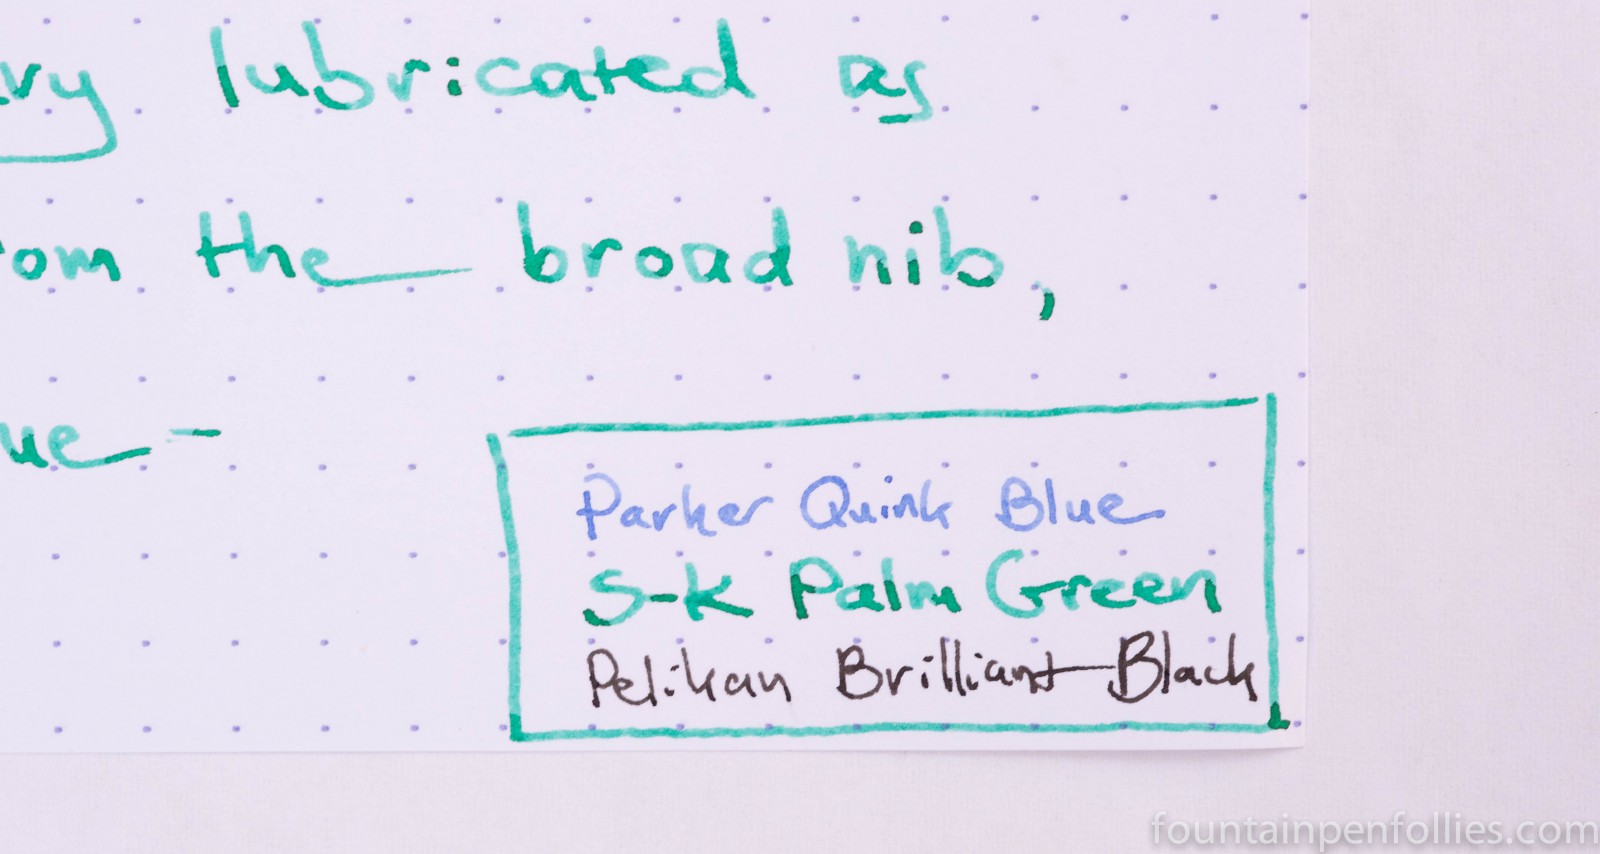 lubricated as
the broad nib,
Parker Quink Blue
S-K Palm Green
Pelikan Brilliant Black
fountainpenfollies.com